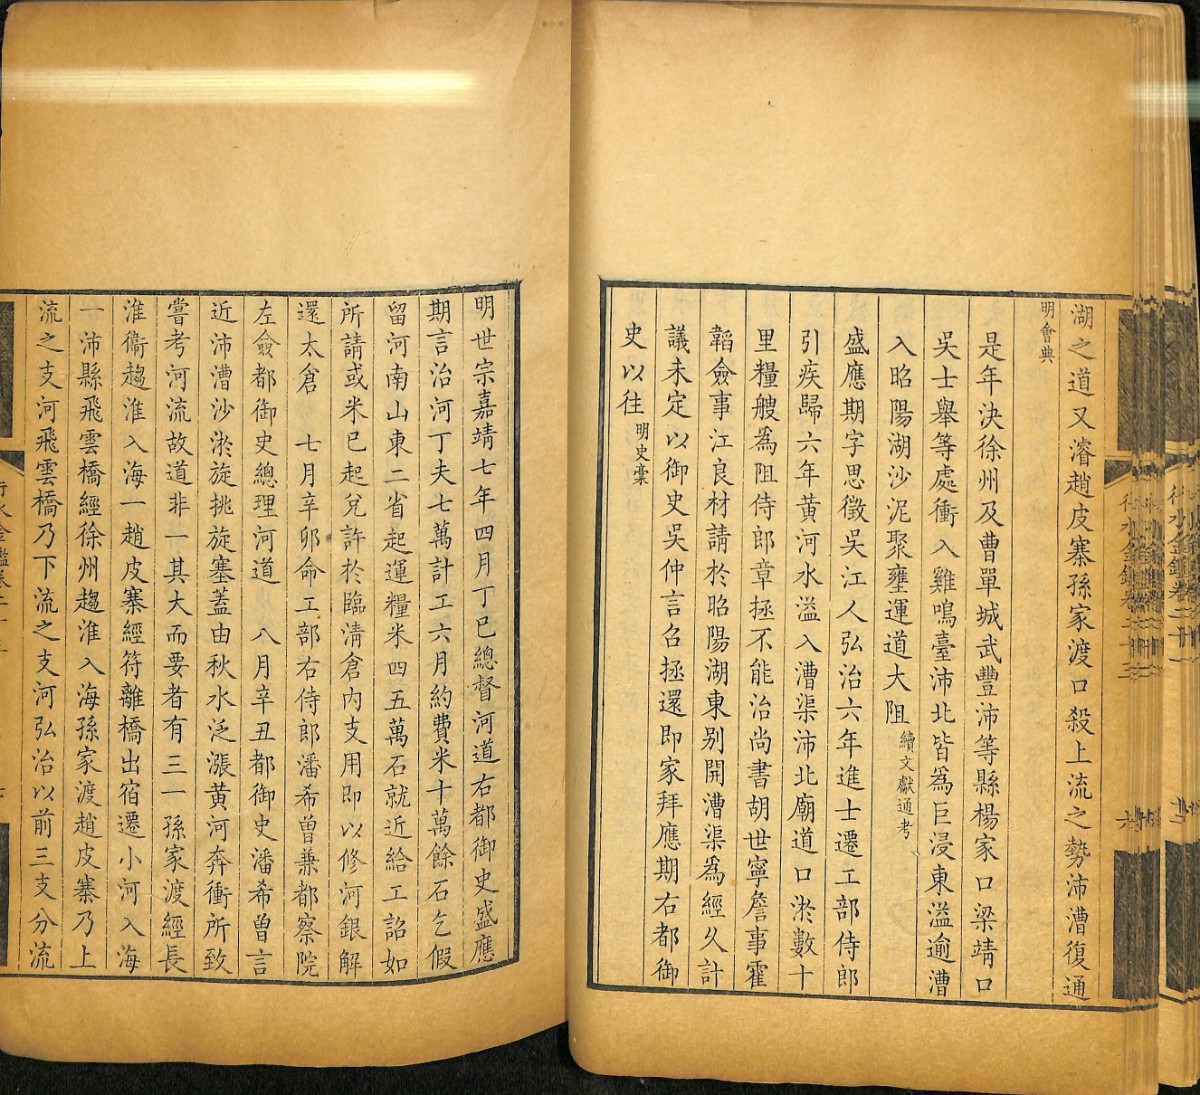 湖之道又濬趙皮寨孫家渡口殺上流之勢沛漕復通
明會典
是年決徐州及曹單城武豐沛等縣楊家口梁靖口
吳士舉等處衝入雞鳴臺沛北皆為巨浸東溢逾漕
入昭陽湖沙泥聚壅運道大阻續文獻通考
盛應期字思徵吳江人弘治六年進士遷工部侍郎
引疾歸六年黃河水溢入漕渠沛北廟道口淤數十
里糧艘為阻侍郎章拯不能治尚書胡世寧詹事霍
韜僉事江良材請於昭陽湖東别開漕渠為經久計
議未定以御史吳仲言召拯還即家拜應期右都御
史以往明史稾
明世宗嘉靖七年四月丁巳總督河道右都御史盛應
期言治河丁夫七萬計工六月約費米十萬餘石乞假
留河南山東二省起運糧米四五萬石就近給工詔如
所請或米已起兌許於臨清倉内支用即以修河銀解
還太倉　七月辛卯命工部右侍郎潘希曽兼都察院
左僉都御史總理河道　八月辛丑都御史潘希曽言
近沛漕沙淤旋挑旋塞蓋由秋水泛漲黃河奔衝所致
嘗考河流故道非一其大而要者有三一孫家渡經長
淮衞趨淮入海一趙皮寨經符離橋出宿遷小河入海
一沛縣飛雲橋經徐州趨淮入海孫家渡趙皮寨乃上
流之支河飛雲橋乃下流之支河弘治以前三支分流